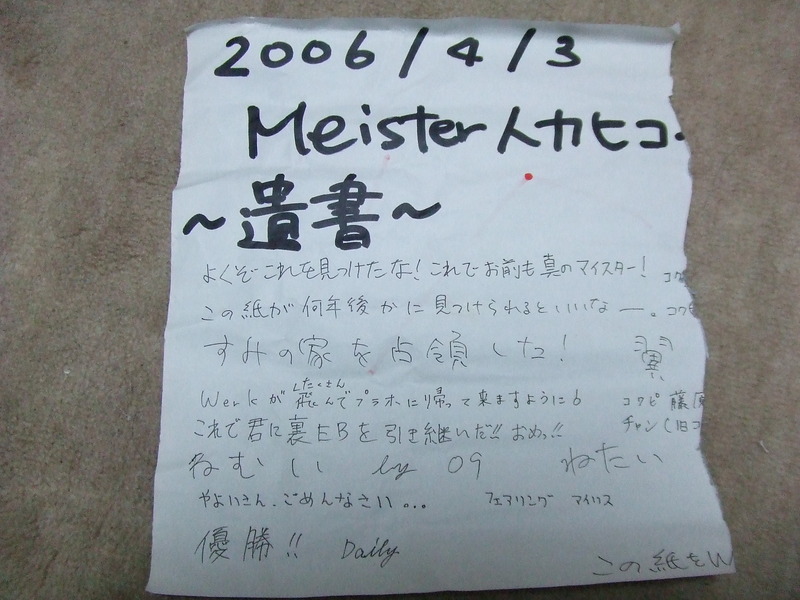 2006/4/3
Meister人カヒコ
～遺書～
よくぞこれを見つけたな！これでお前も真のマイスター！
この紙が何年後かに見つけられるといいなー。
すみの家を占領した！ 翼
Werkが飛んでプラホに帰って来ますように
したくさん
コワピ 藤原
これで君に裏EBを引き継いだ!!おめっ!!
チャン(旧コ
ねむいい by 09 ねたい
やよいさん、ごめんなさい… フェアリング マイリス
優勝!! Daily
この紙をW